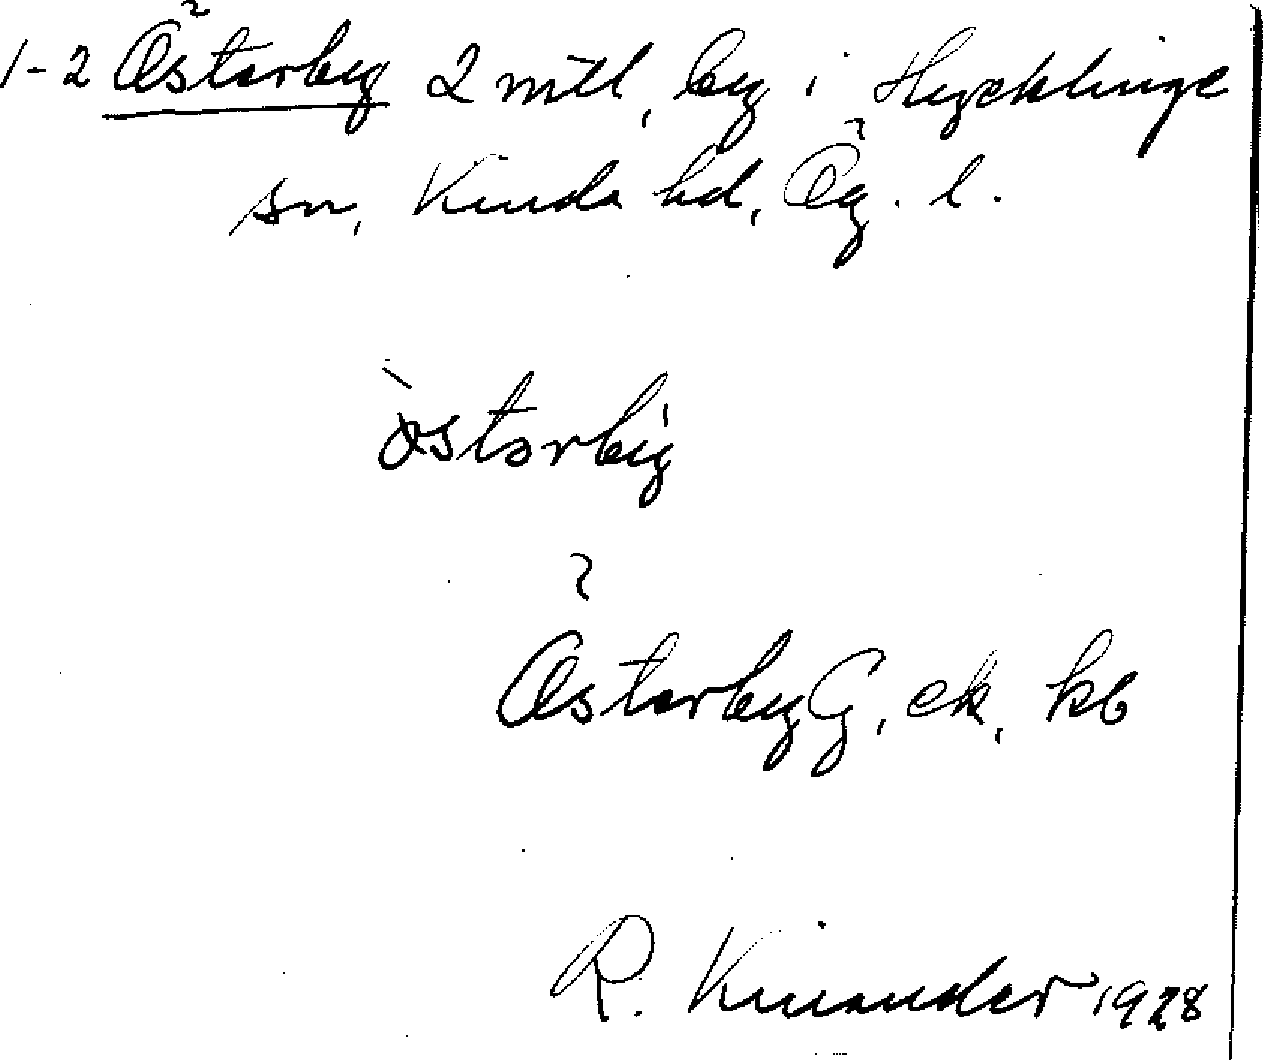 1-2 Österby 2 mtl, by i Hycklinge
sn, Kinda hd, Ög. l.
Österby G, ek, kb
R. Kinander 1928